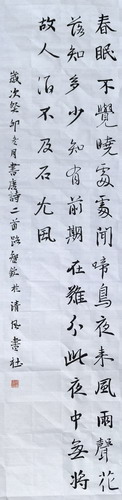 春眠不覺曉處處聞啼鳥夜來風雨聲花
落知多少知有前期在難分此夜中無將
故人酒不及石尤風
歲次癸卯冬月書唐詩二首路於清風書社